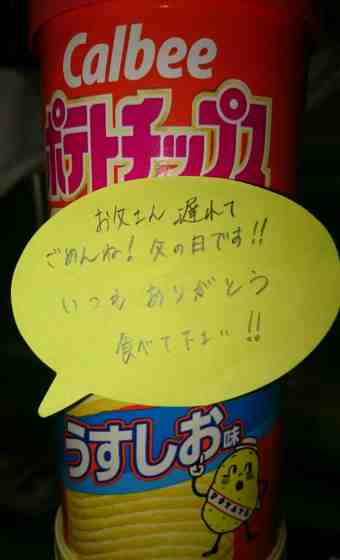 Calbee
ポテトチップス
お父さん 遅れて
ごめんね! 父の日です!!
いつも ありがとう
食べて下さい !!
うすしお味
POTATO